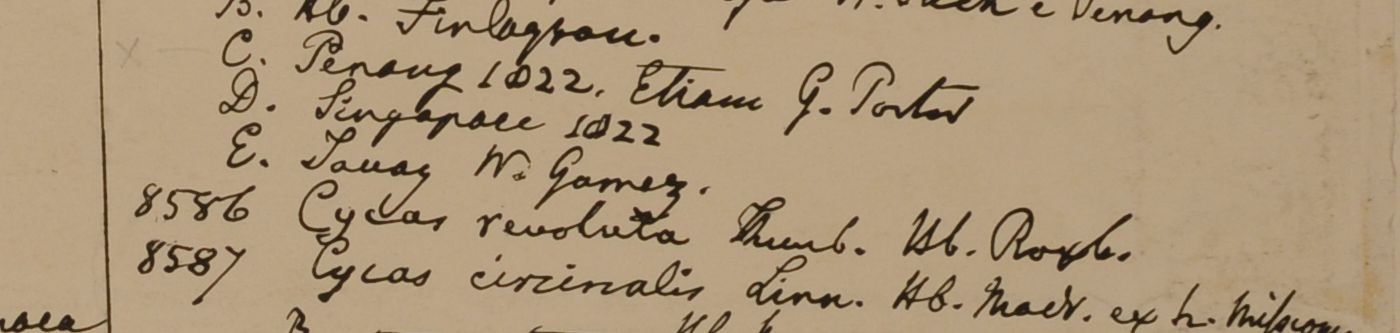 B. Hb. Finlayson. e Penang.
C. Penang 1822. Etiam G. Porter
D. Singapore 1822
E. Tavoy W. Gomez.
8586 Cycas revoluta Thunb. Hb. Roxb.
8587 Cycas circinalis Linn. Hb. Madr. ex h. Mission